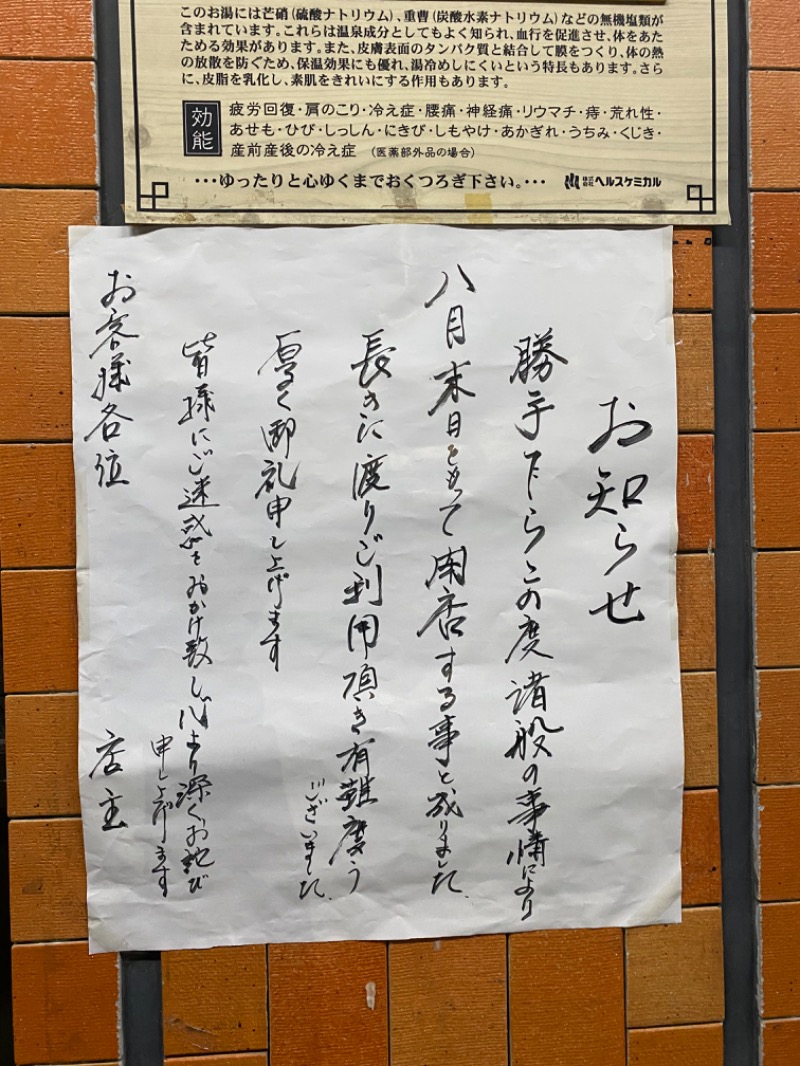 このお湯には芒硝(硫酸ナトリウム)、重曹(炭酸水素ナトリウム)などの無機塩類が
含まれています。これらは温泉成分としてもよく知られ、血行を促進させ、体をあた
ためる効果があります。また、皮膚表面のタンパク質と結合して膜をつくり、体の熱
の放散を防ぐため、保温効果にも優れ、湯冷めしにくいという特長もあります。さら
に、皮脂を乳化し、素肌をきれいにする作用もあります。
効能
疲労回復・肩のこり・冷え症・腰痛・神経痛・リウマチ・痔・荒れ性・
あせも・ひび・しっしん・にきび・しもやけ・あかぎれ・うちみ・くじき・
産前産後の冷え症 (医薬部外品の場合)
・・・ゆったりと心ゆくまでおくつろぎ下さい。・・・
株式会社ヘルスケミカル
お知らせ
勝手下らこの度諸般の事情により
八月末日をもって閉店する事と成りました、
長きに渡りご利用頂き有難度う
ございました、
厚く御礼申し上げます
皆様にご迷惑をおかけ致し心より深くお詑び
申し上げます
お客様各位
店主